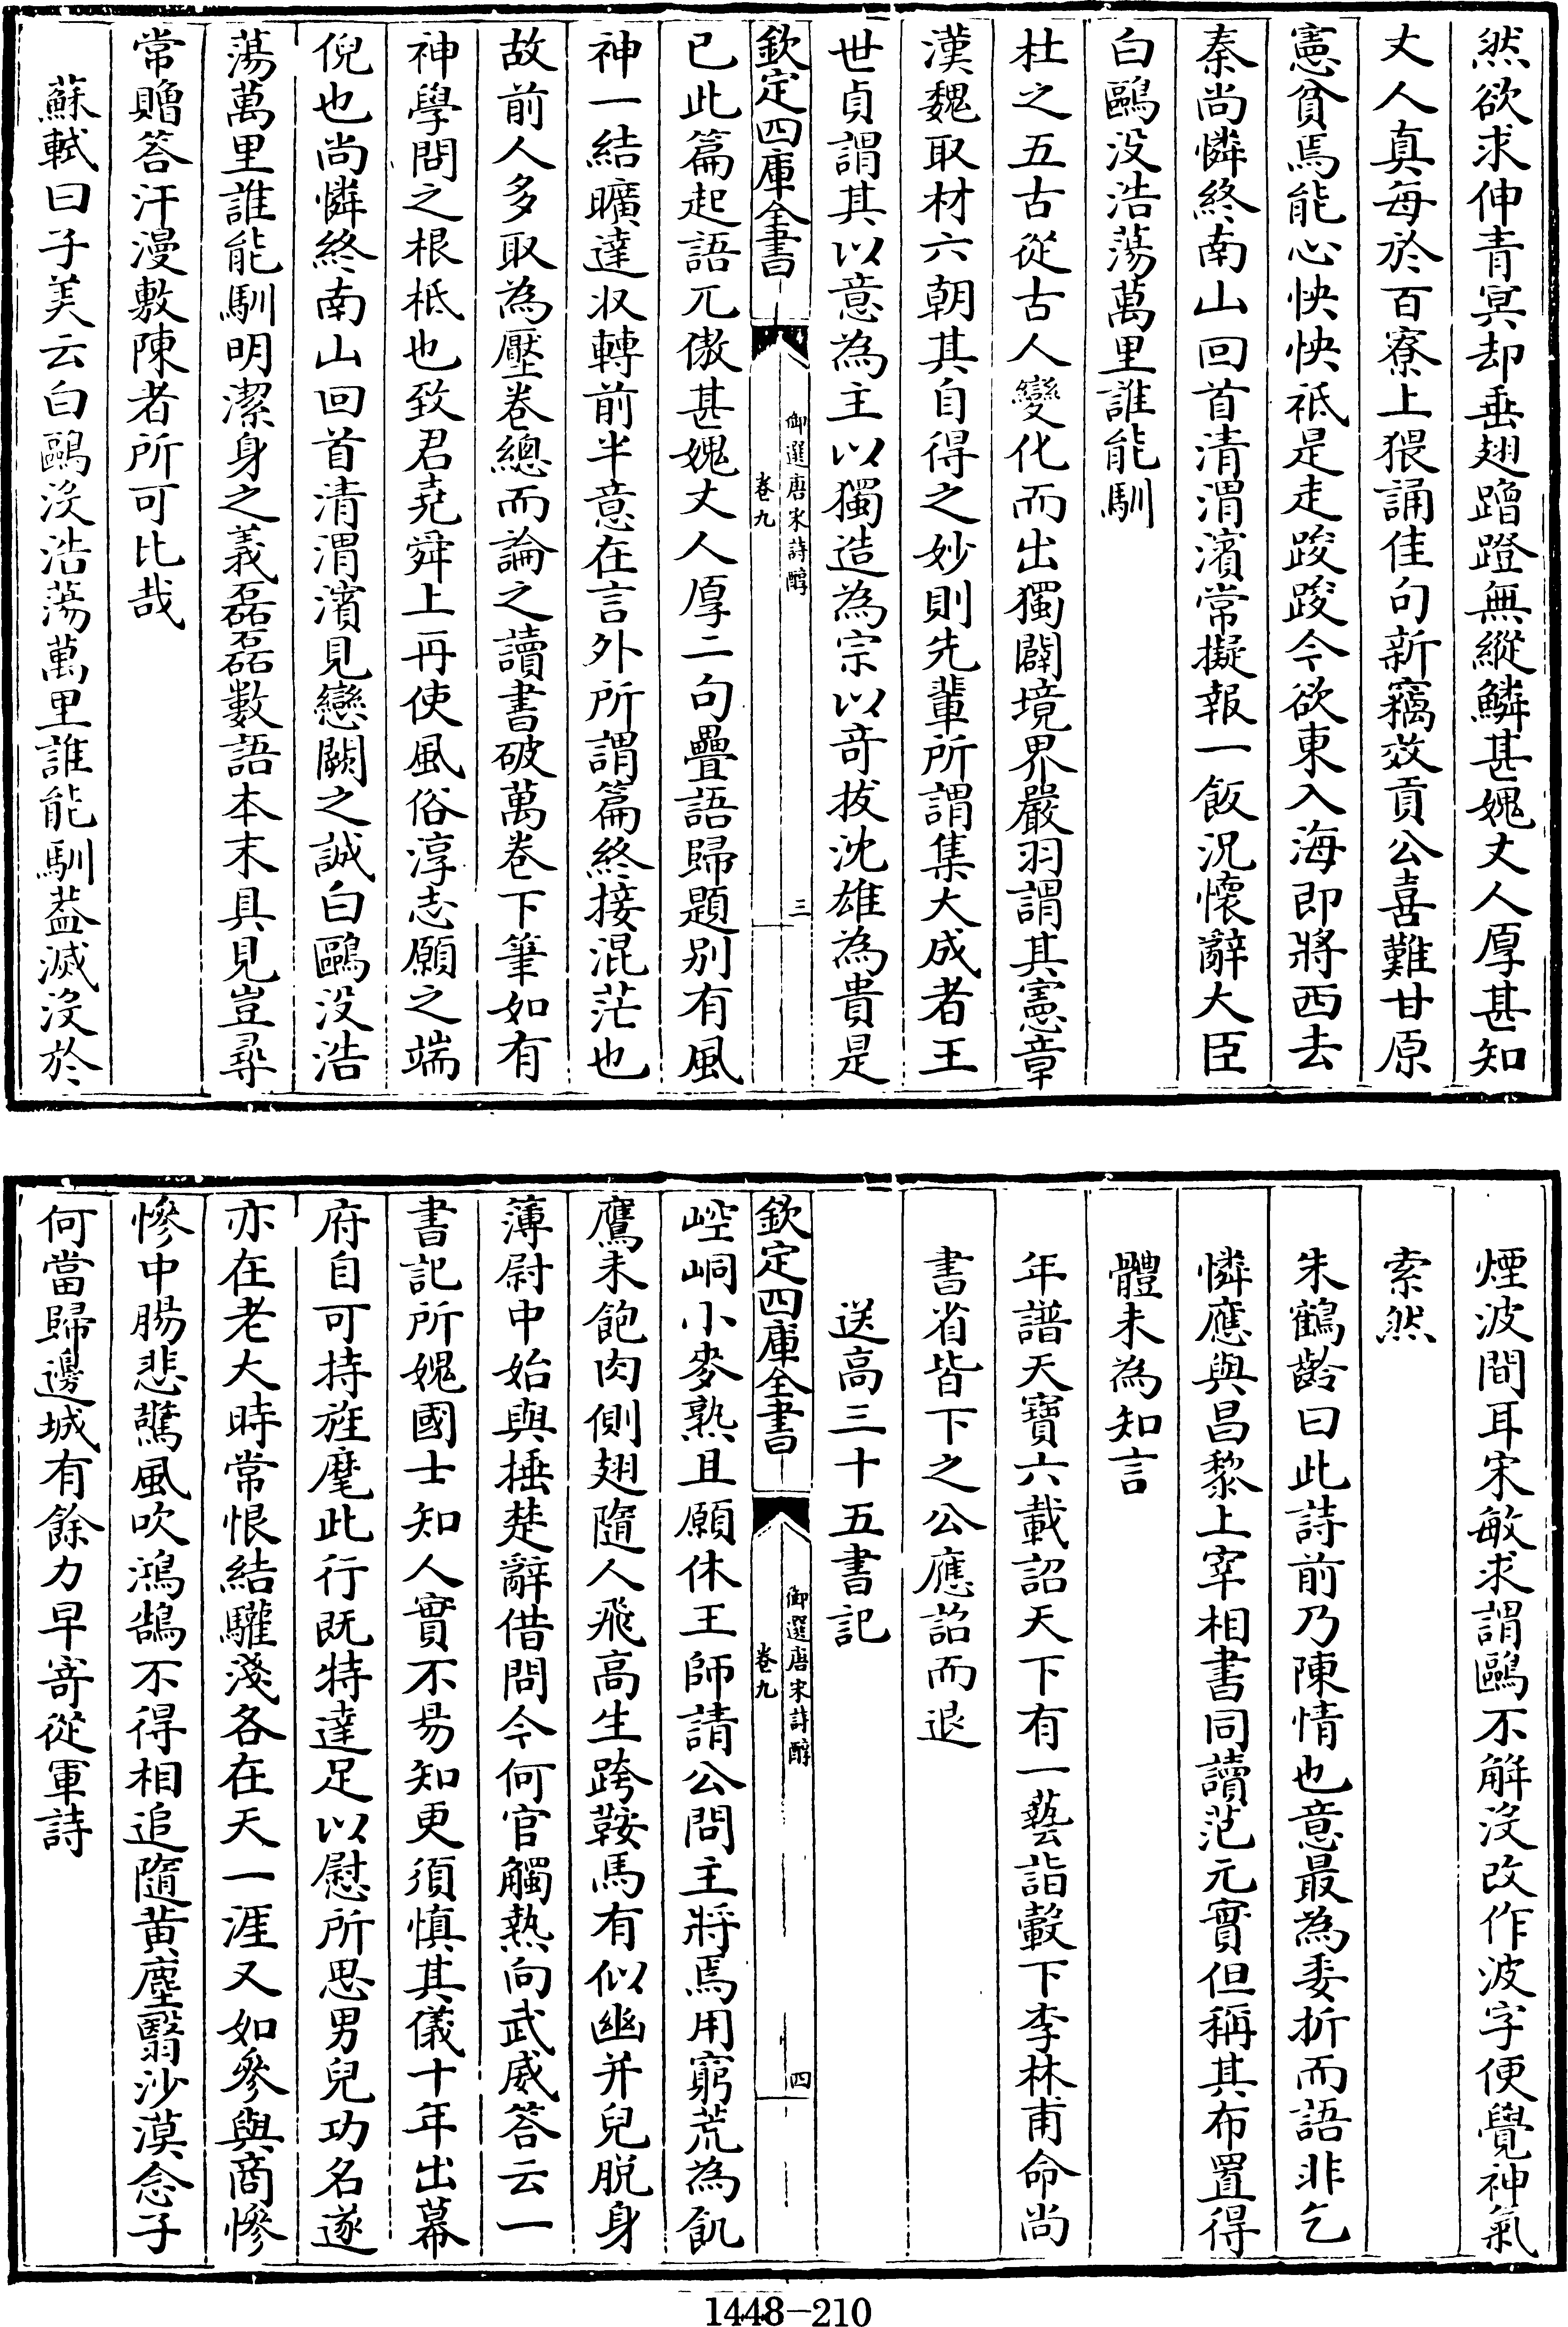 然欲求伸青冥却垂翅蹭蹬無縱鱗甚媿丈人厚甚知
丈人真每於百寮上猥誦佳句新竊效貢公喜難甘原
憲貧焉能心怏怏祗是走踆踆今欲東入海即將西去
秦尚憐終南山回首清渭濱常擬報一飯況懷辭大臣
白鷗没浩蕩萬里誰能馴
杜之五古從古人變化而出獨闢境界嚴羽謂其憲章
漢魏取材六朝其自得之妙則先輩所謂集大成者王
世貞謂其以意為主以獨造為宗以竒拔沈雄為貴是
欽定四庫全書
御選唐宋詩醇
卷九
三
已此篇起語兀傲甚媿丈人厚二句疊語歸題别有風
神一結曠達收轉前半意在言外所謂篇終接混茫也
故前人多取為壓卷總而論之讀書破萬卷下筆如有
神學問之根柢也致君堯舜上再使風俗淳志願之端
倪也尚憐終南山回首清渭濱見戀闕之誠白鷗没浩
蕩萬里誰能馴明潔身之義磊磊數語本末具見豈尋
常贈答汗漫敷陳者所可比哉
蘇軾曰子美云白鷗没浩蕩萬里誰能馴葢滅没於
煙波間耳宋敏求謂鷗不解没改作波字便覺神氣
索然
朱鶴齡曰此詩前乃陳情也意最為委折而語非乞
憐應與昌黎上宰相書同讀范元實但稱其布置得
體未為知言
年譜天寶六載詔天下有一藝詣轂下李林甫命尚
書省皆下之公應詔而退
送高三十五書記
欽定四庫全書
御選唐宋詩醇
卷九
四
崆峒小麥熟且願休王師請公問主將焉用窮荒為飢
鷹未飽肉側翅隨人飛高生跨鞍馬有似幽并兒脱身
薄尉中始與捶楚辭借問今何官觸熱向武威答云一
書記所媿國士知人實不易知更須慎其儀十年出幕
府自可持旌麾此行既特達足以慰所思男兒功名遂
亦在老大時常恨結驩淺各在天一涯又如參與商慘
慘中腸悲驚風吹鴻鵠不得相追隨黄塵翳沙漠念子
何當歸邊城有餘力早寄從軍詩
1448—210